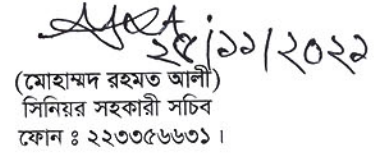 ২৫/১১/২০২১
(মোহাম্মদ রহমত আলী)
সিনিয়র সহকারী সচিব
ফোন ঃ ২২৩৩৫৬৬৩১ ।